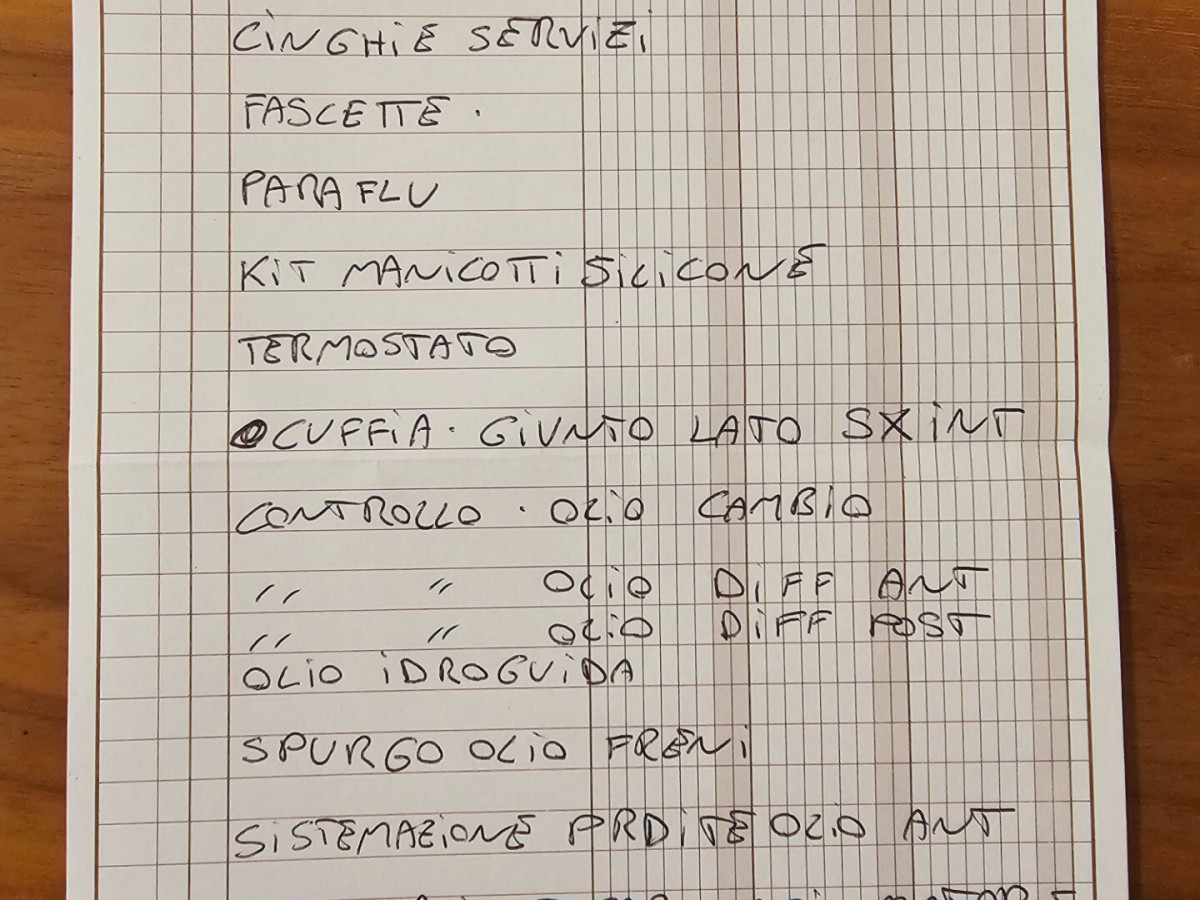 CINGHIE SERVIZI
FASCETTE .
PARAFLU
KIT MANICOTTI SILICONE
TERMOSTATO
CUFFIA . GIUNTO LATO SX INT
CONTROLLO . OLIO CAMBIO
" " OLIO DIFF ANT
" " OLIO DIFF POST
OLIO IDROGUIDA
SPURGO OLIO FRENI
SISTEMAZIONE PRDITE OLIO ANT